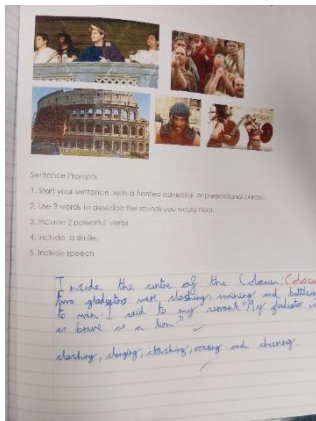 Sentence Prompts
1. Start your sentence with a fronted adverbial or prepositional phrase.
2. Use 3 words to describe the sounds you would hear
3. Include 2 powerful verbs
4. Include a simile.
5. Include speech
Inside the centre of the Coloseum,
two gladiators were slashing, and
to win. I said to my servant "My gladiator is
as brave as a lion."
slashing, clanging, crashing, and cheering.